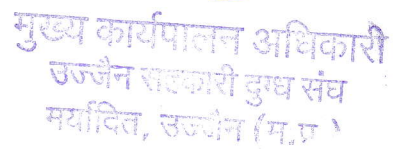 मुख्य कार्यपालन अधिकारी
उज्जैन सहकारी दुग्ध संघ
मर्यादित, उज्जैन (म.प्र )